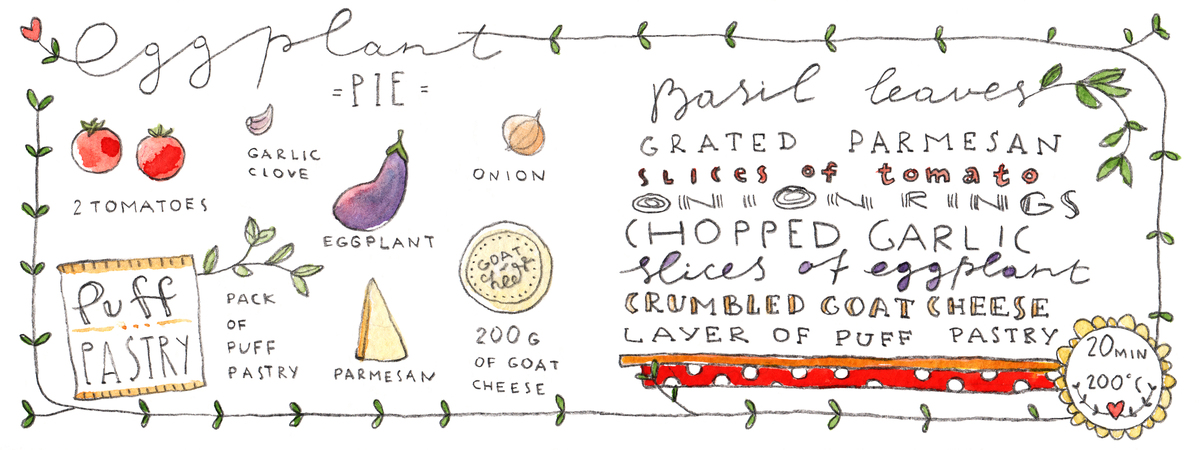 eggplant
=PIE=
2 TOMATOES
GARLIC
CLOVE
EGGPLANT
ONION
Puff
PASTRY
PACK
OF
PUFF
PASTRY
PARMESAN
GOAT
cheese
200 G
OF GOAT
CHEESE
Basil leaves
GRATED PARMESAN
slices of tomato
ONION RINGS
CHOPPED GARLIC
slices of eggplant
CRUMBLED GOAT CHEESE
LAYER OF PUFF PASTRY
20 MIN
200°C